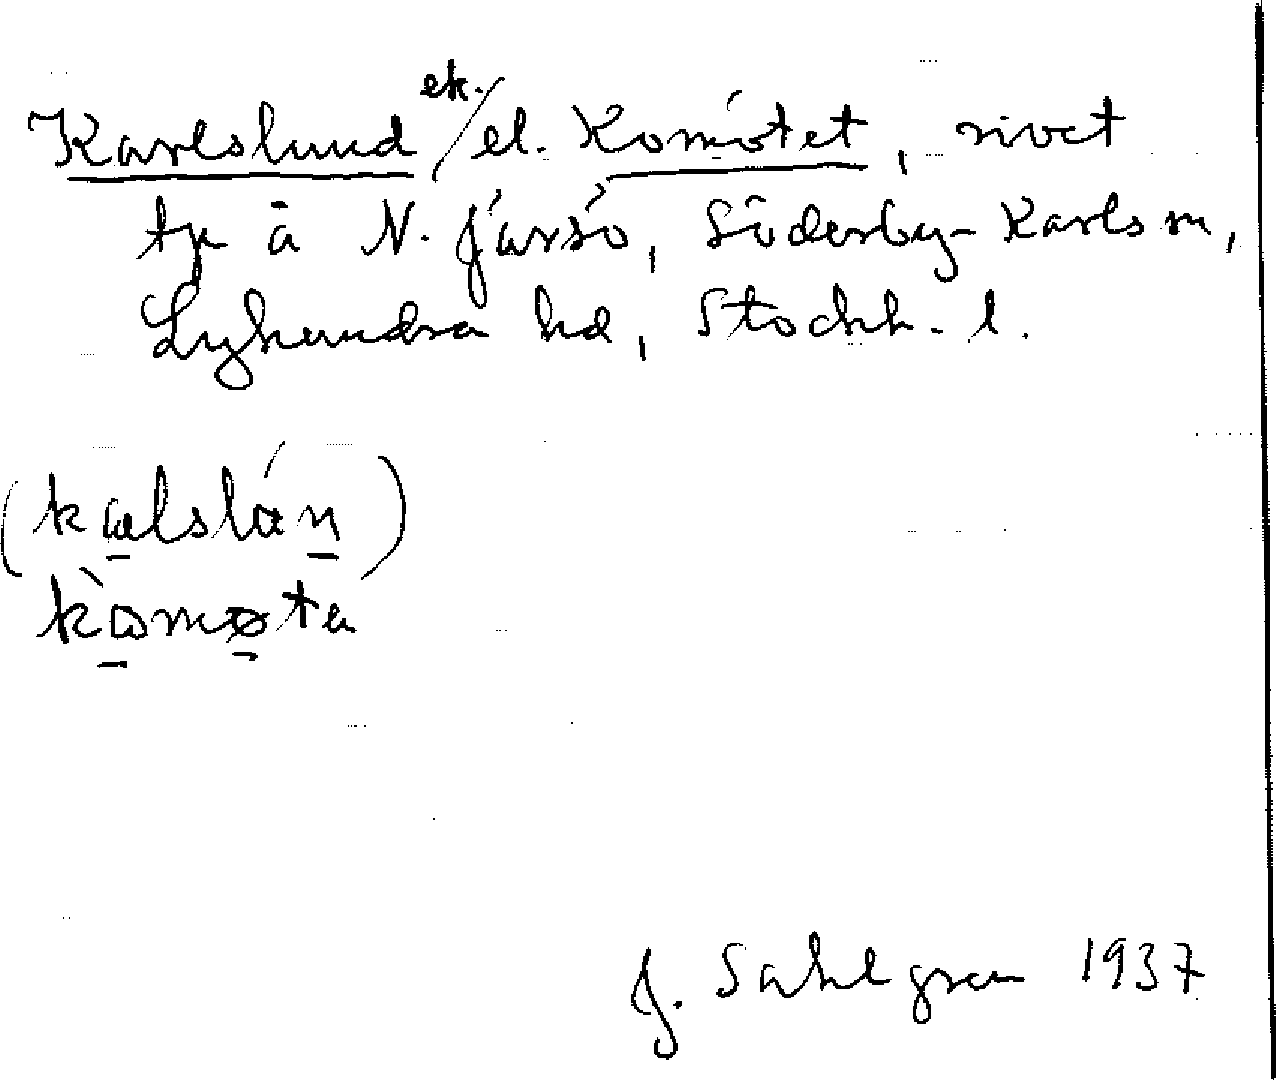 Karlslund ek./el. Komötet, rivet
tp å N. Järsö, Söderby-Karls sn,
Lyhundra hd, Stockh. l.
(kalslán)
kòmøta
J. Sahlgren 1937